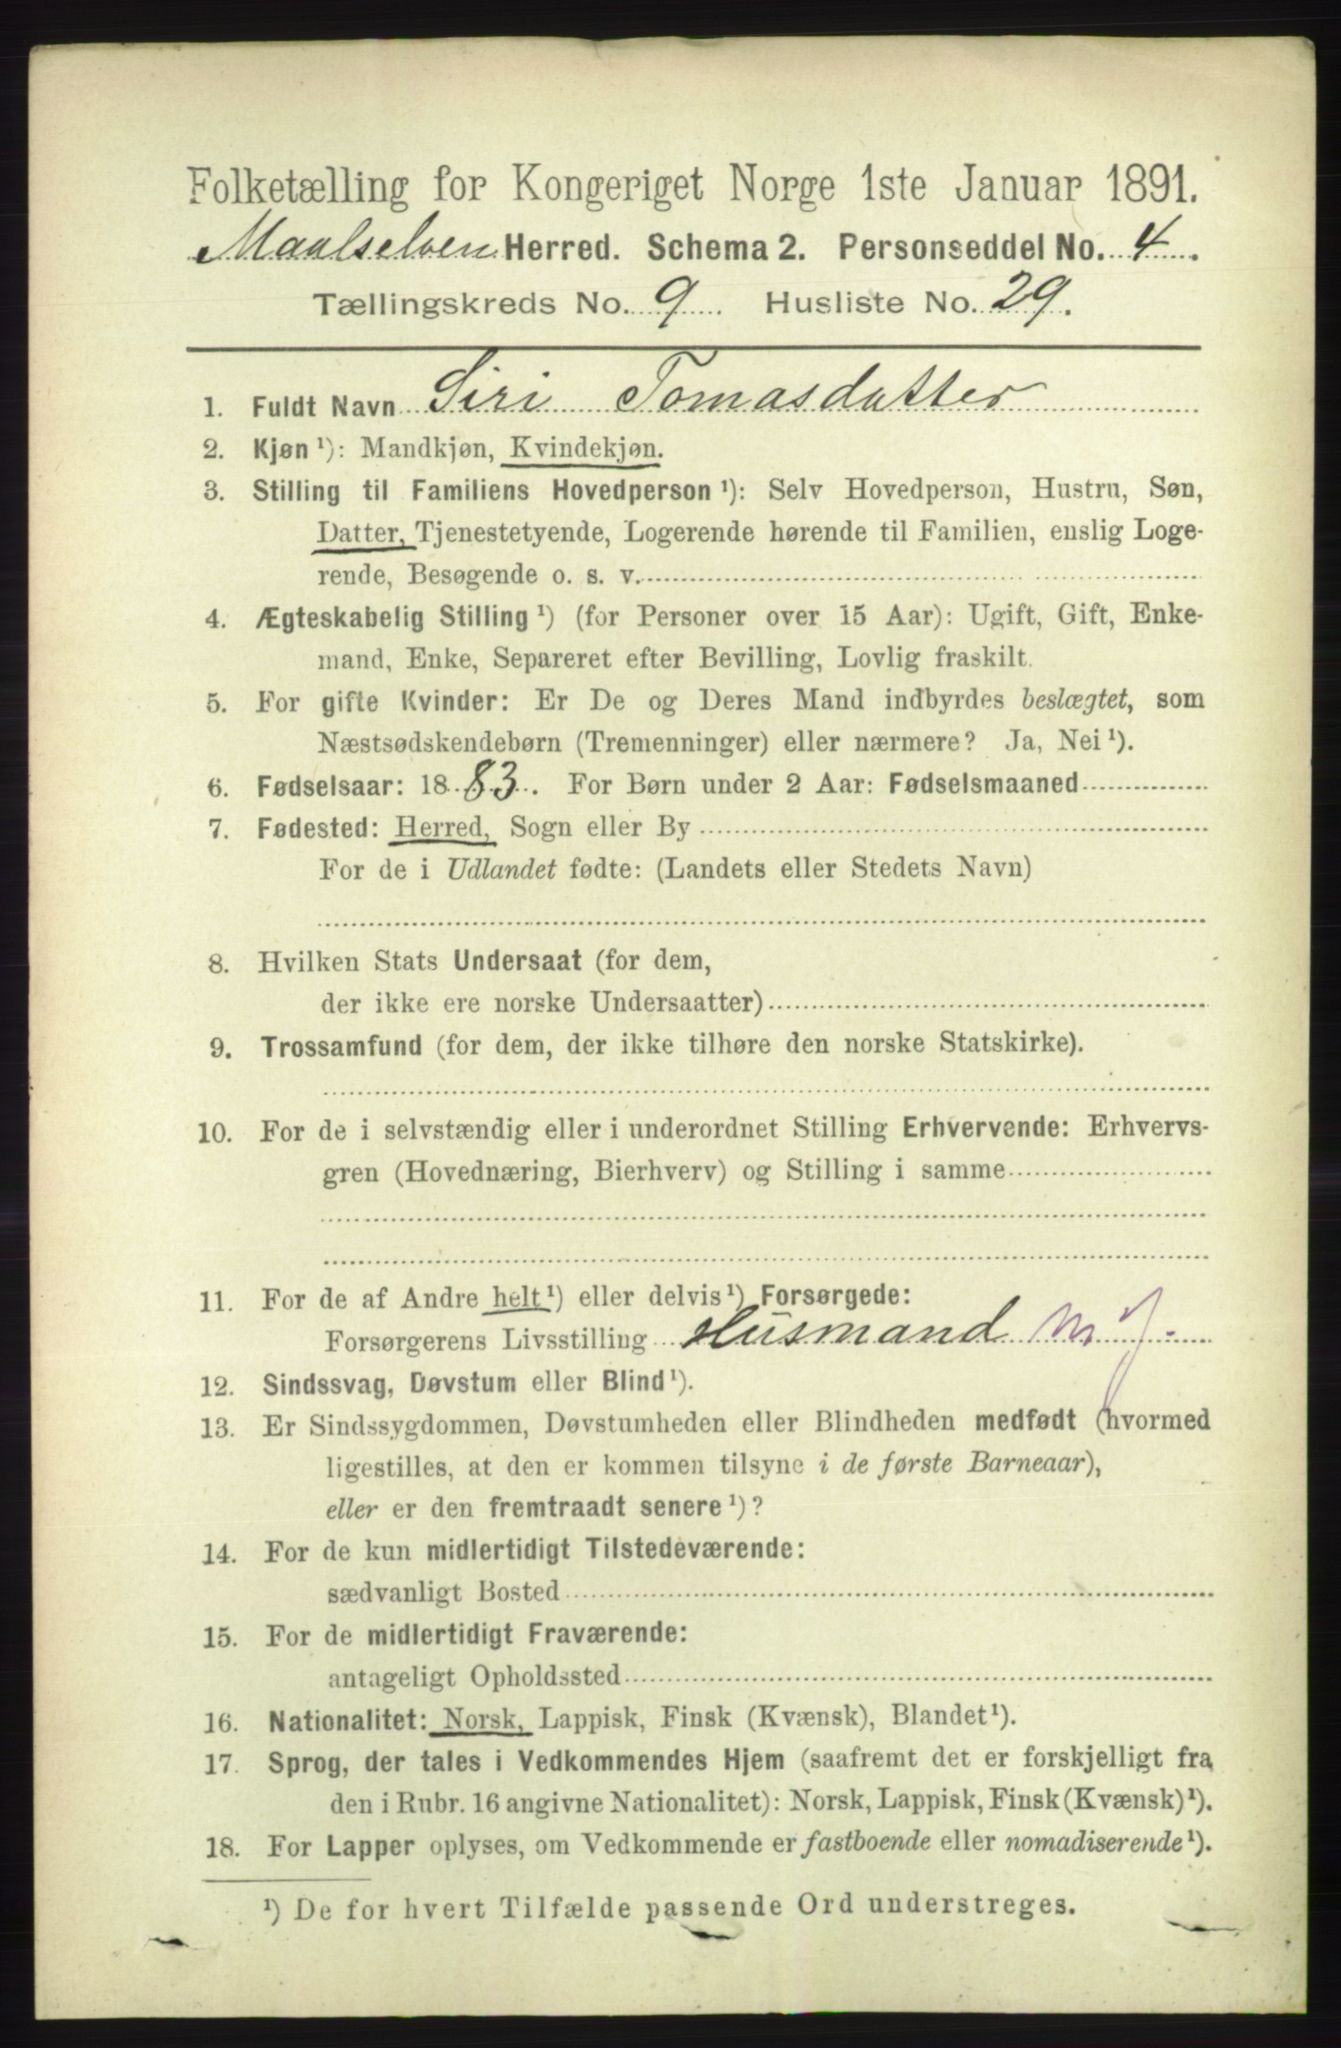 Folketælling for Kongeriget Norge 1ste Januar 1891.
Maalselven Herred. Schema 2. Personseddel No. 4.
Tællingskreds No. 9 Husliste No. 29.
1. Fuldt Navn Siri Tomasdatter
2. Kjøn ¹): Mandkjøn, Kvindekjøn.
3. Stilling til Familiens Hovedperson ¹): Selv Hovedperson, Hustru, Søn,
Datter, Tjenestetyende, Logerende hørende til Familien, enslig Loge-
rende, Besøgende o. s. v.
4. Ægteskabelig Stilling ¹) (for Personer over 15 Aar): Ugift, Gift, Enke-
mand, Enke, Separeret efter Bevilling, Lovlig fraskilt.
5. For gifte Kvinder: Er De og Deres Mand indbyrdes beslægtet, som
Næstsødskendebørn (Tremenninger) eller nærmere? Ja, Nei ¹).
6. Fødselsaar: 1883. For Børn under 2 Aar: Fødselsmaaned
7. Fødested: Herred, Sogn eller By
For de i Udlandet fødte: (Landets eller Stedets Navn)
8. Hvilken Stats Undersaat (for dem,
der ikke ere norske Undersaatter)
9. Trossamfund (for dem, der ikke tilhøre den norske Statskirke).
10. For de i selvstændig eller i underordnet Stilling Erhvervende: Erhvervs-
gren (Hovednæring, Bierhverv) og Stilling i samme
11. For de af Andre helt ¹) eller delvis ¹) Forsørgede:
Forsørgerens Livsstilling Husmand m. J.
12. Sindssvag, Døvstum eller Blind ¹).
13. Er Sindssygdommen, Døvstumheden eller Blindheden medfødt (hvormed
ligestilles, at den er kommen tilsyne i de første Barneaar),
eller er den fremtraadt senere ¹)?
14. For de kun midlertidigt Tilstedeværende:
sædvanligt Bosted
15. For de midlertidigt Fraværende:
antageligt Opholdssted
16. Nationalitet: Norsk, Lappisk, Finsk (Kvænsk), Blandet ¹).
17. Sprog, der tales i Vedkommendes Hjem (saafremt det er forskjelligt fra
den i Rubr. 16 angivne Nationalitet): Norsk, Lappisk, Finsk (Kvænsk) ¹).
18. For Lapper oplyses, om Vedkommende er fastboende eller nomadiserende ¹).
¹) De for hvert Tilfælde passende Ord understreges.